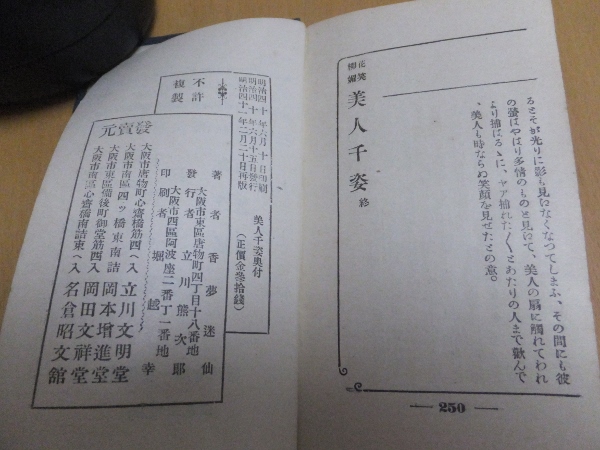 るとそが光りに影も見いなくなつてしまふ、その間にも彼
の螢はやはり多情のものと見いて、美人の扇に觸れてわれ
より捕はるゝに、ヤア捕れた〳〵とあたりの人まで歡んで
、美人も時ならぬ笑顔を見せたとの意。
美人千姿 終
250
明治四十年六月十日印刷
明治四十年六月十五日發行
明治四十一年二月二十日再版
不許
複製
美人千姿奥付
(正價金叁拾錢)
著者 香夢迷仙
大阪市東區唐物町四丁目十八番地
發行者 立川熊次郎
大阪市西區阿波座二番丁一番地
印刷者 堀越幸
發賣元
大阪市唐物町心齋橋筋西へ入 立川文明堂
大阪市南區四ッ橋東南詰 岡本增進堂
大阪市東區備後町御堂筋西入 岡田文祥堂
大阪市南區心齋橋南詰東へ入 名倉昭文館